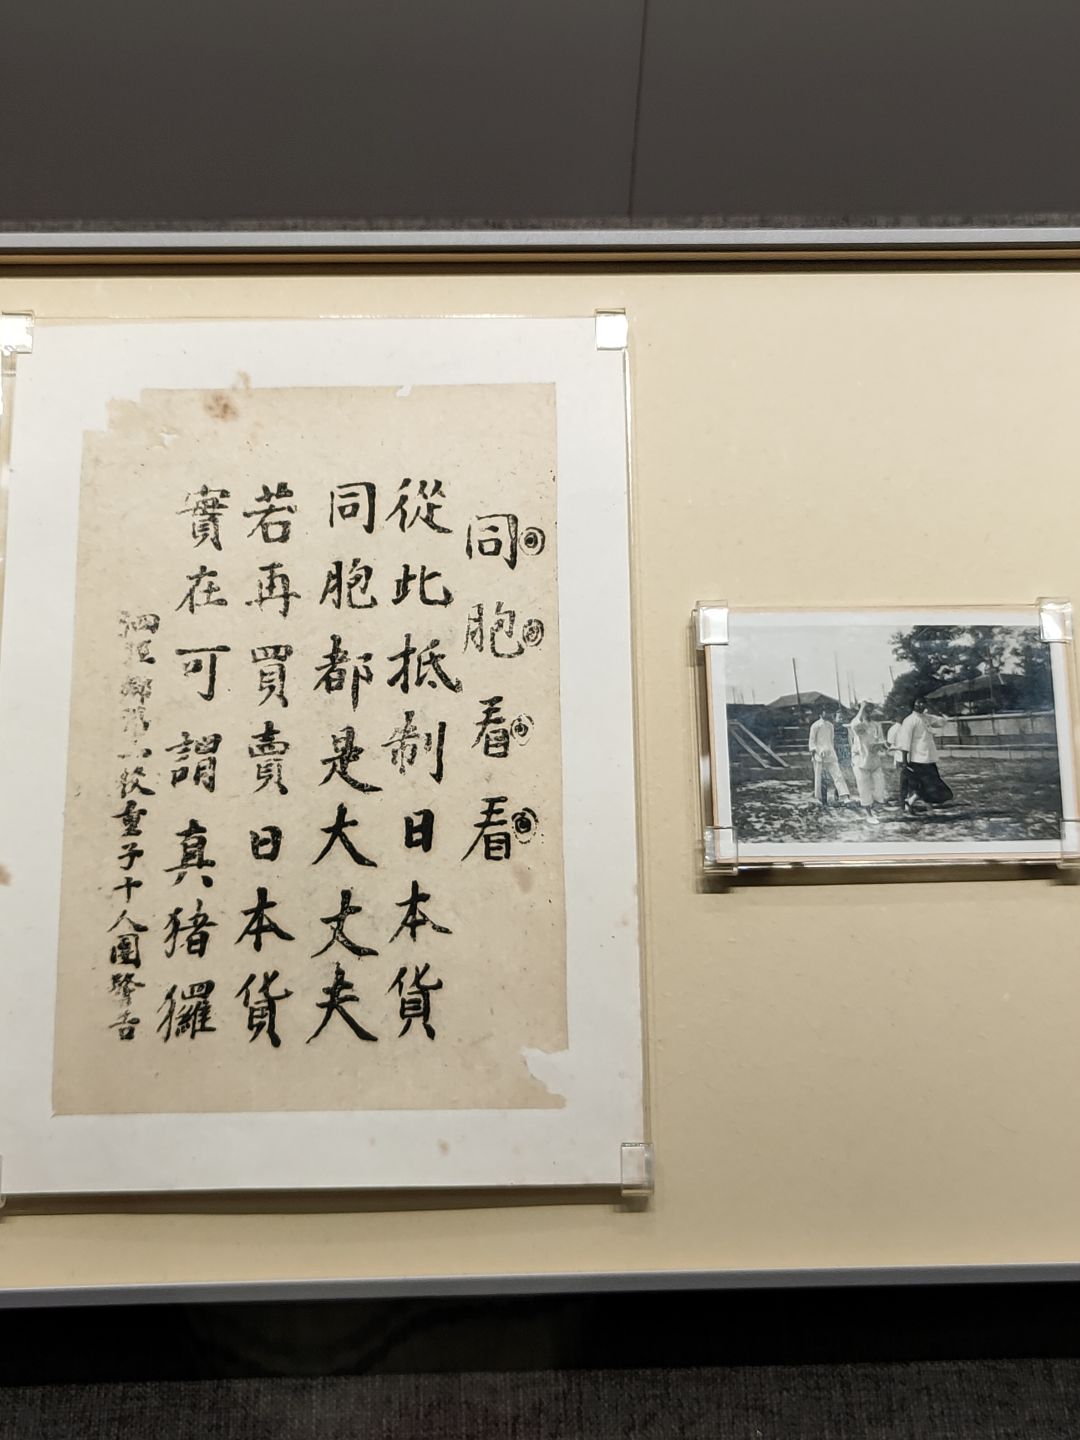 同胞看看
從此抵制日本貨
同胞都是大丈夫
若再買賣日本貨
實在可謂真猪玀
泗涇鄉第校童子十人團警告